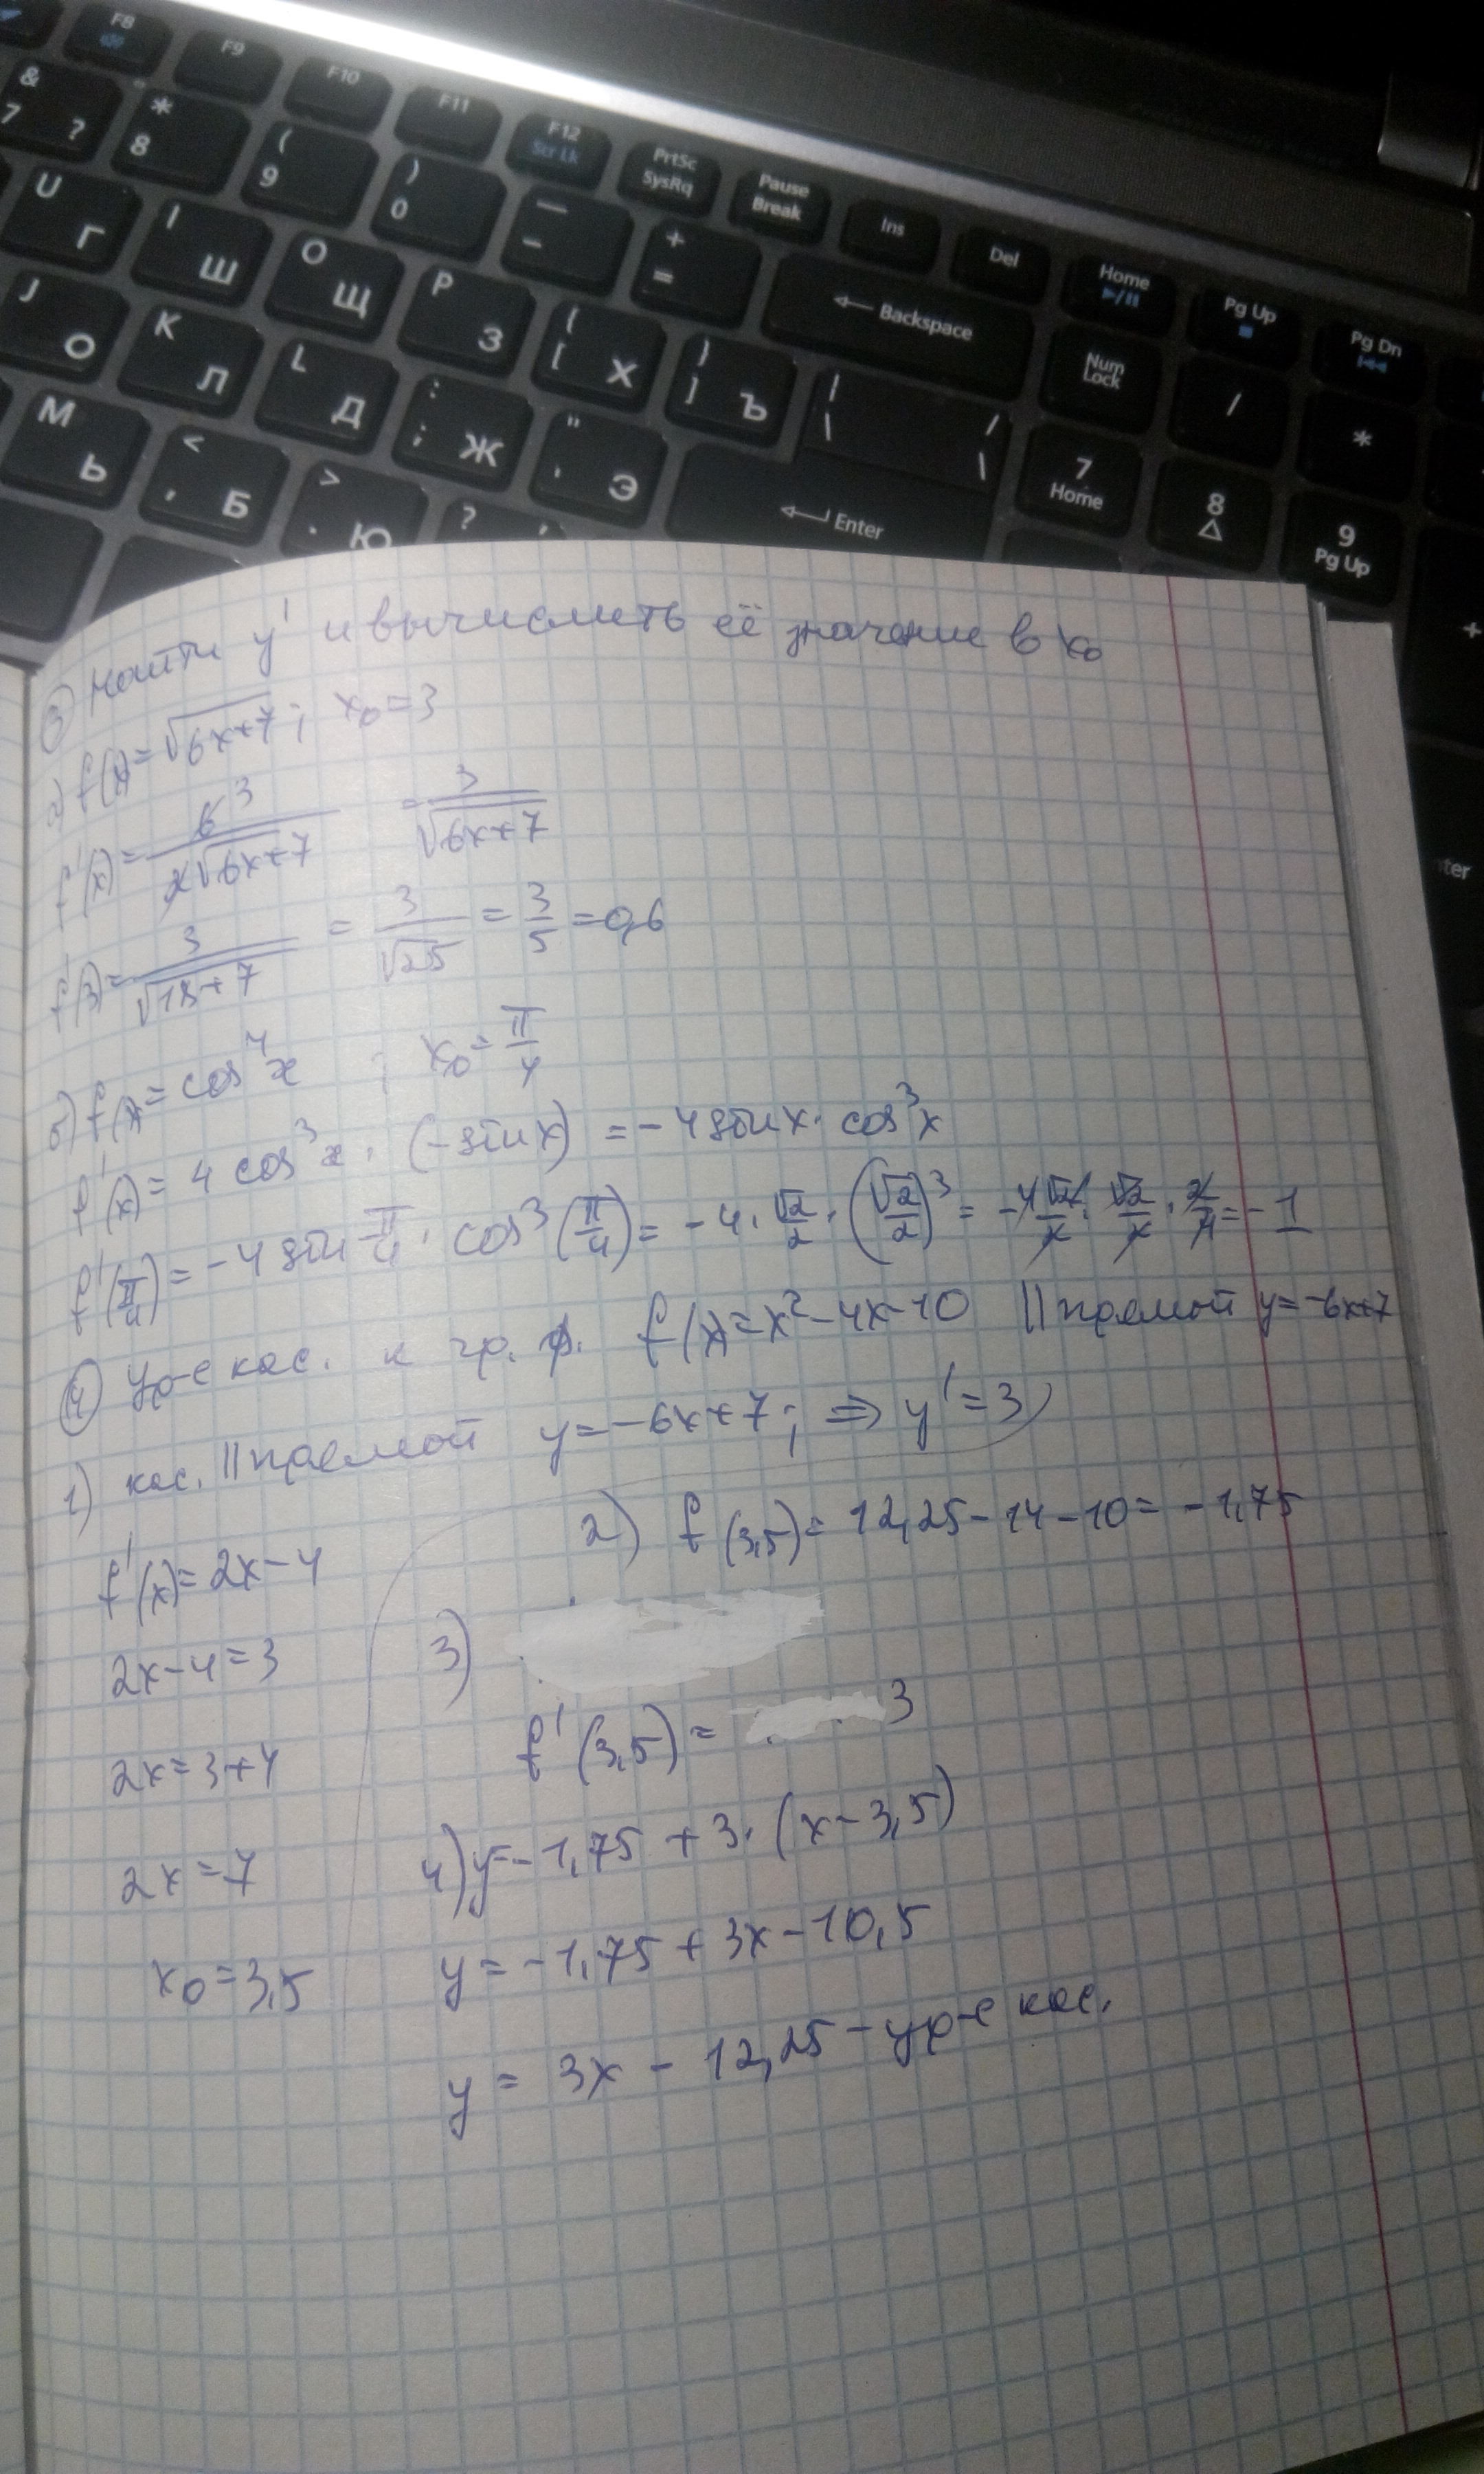 F8 F9 F10 F11 F12 Scr Lk PrtSc SysRq Pause Break Ins Del Home Pg Up Pg Dn
& 7 ? * 8 ( 9 ) 0 — - + = Backspace Num Lock / *
U Г I Ш O Щ P З { [ Х } ] Ъ | \ / \ 7 Home 8 9 Pg Up +
J О K Л L Д : ; Ж " ' Э Enter
M Ь < , Б > . Ю ?
③ Найти y' и вычислить её значение в x₀
а) f(x) = √6x+7; x₀ = 3
f'(x) = 6 3 / 2√6x+7 = 3/√6x+7
f'(3) = 3/√18+7 = 3/√25 = 3/5 = 0,6
б) f(x) = cos⁴x ; x₀ = π/4
f'(x) = 4 cos³x · (-sin x) = -4 sin x · cos³x
f'(π/4) = -4 sin π/4 · cos³(π/4) = -4 · √2/2 · (√2/2)³ = -4√2/2 · √2/2 · 2/4 = -1
④ Ур-е кас. к гр. ф. f(x) = x² - 4x - 10 || прямой y = -6x+7
1) кас. || прямой y = -6x+7; ⇒ y' = 3
f'(x) = 2x - 4
2x - 4 = 3
2x = 3+4
2x = 7
x₀ = 3,5
2) f(3,5) = 12,25 - 14 - 10 = -1,75
3)
f'(3,5) = 3
4) y = -1,75 + 3 · (x - 3,5)
y = -1,75 + 3x - 10,5
y = 3x - 12,25 - ур-е кас.